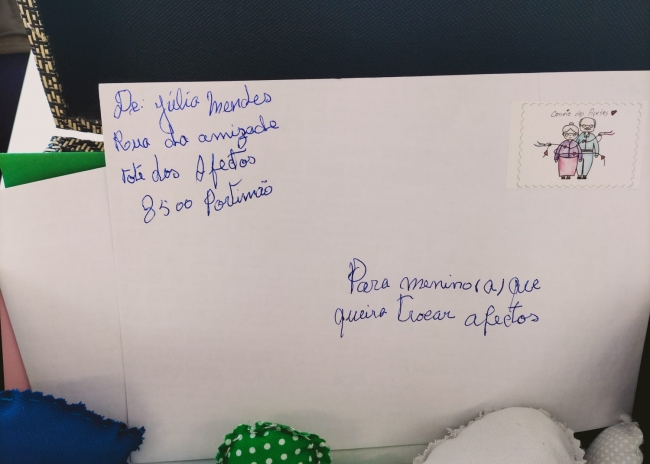 De: Júlia Mendes
Rua da amizade
lote dos Afectos
8500 Portimão
Correio dos Afetos
Para menino(a) que
queira trocar afectos